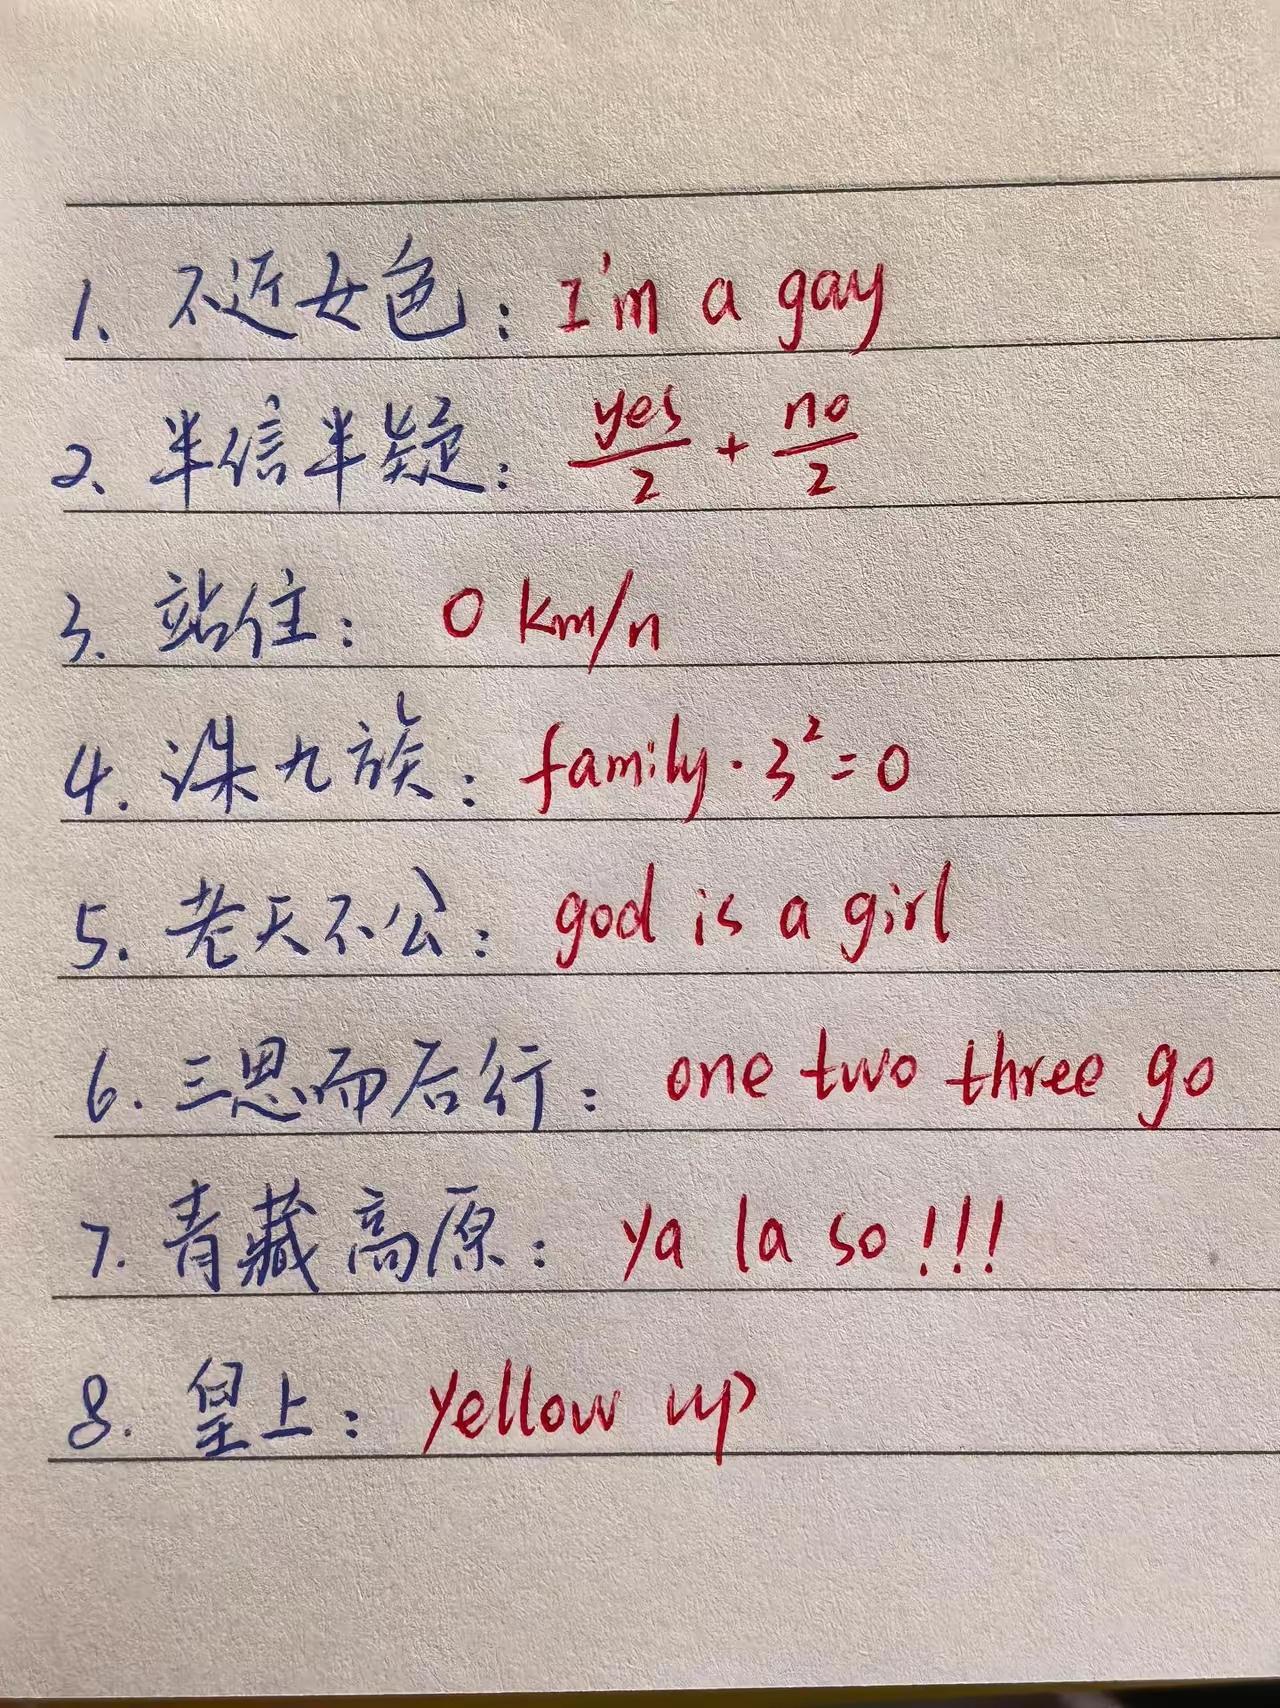 1、不近女色：I'm a gay
2、半信半疑：yes/2 + no/2
3、站住：0 km/n
4、诛九族：family·3²=0
5、老天不公：god is a girl
6、三思而后行：one two three go
7、青藏高原：ya la so!!!
8、皇上：yellow up